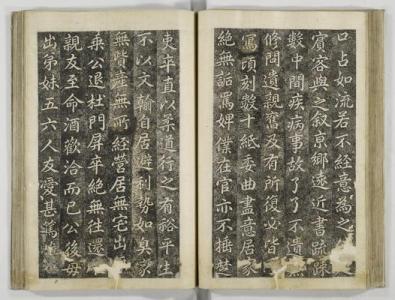 口占如流若不經意為之
賓客與之叙京鄉遠近書疏
數中間疾病事故了了不遺
修問遺親友有所復必皆
寫頃刻數十紙委曲盡意居家
絕無詬罵婢僕在官亦不捶楚
吏卒直以柔道行之有裕平生
不以文翰自居避利勢如臭家
無貲產無所經營居無宅出
乘公退杜門屏卒絕無往還
親友至命酒歡洽而已公後母
出弟妹五六人友愛甚篤